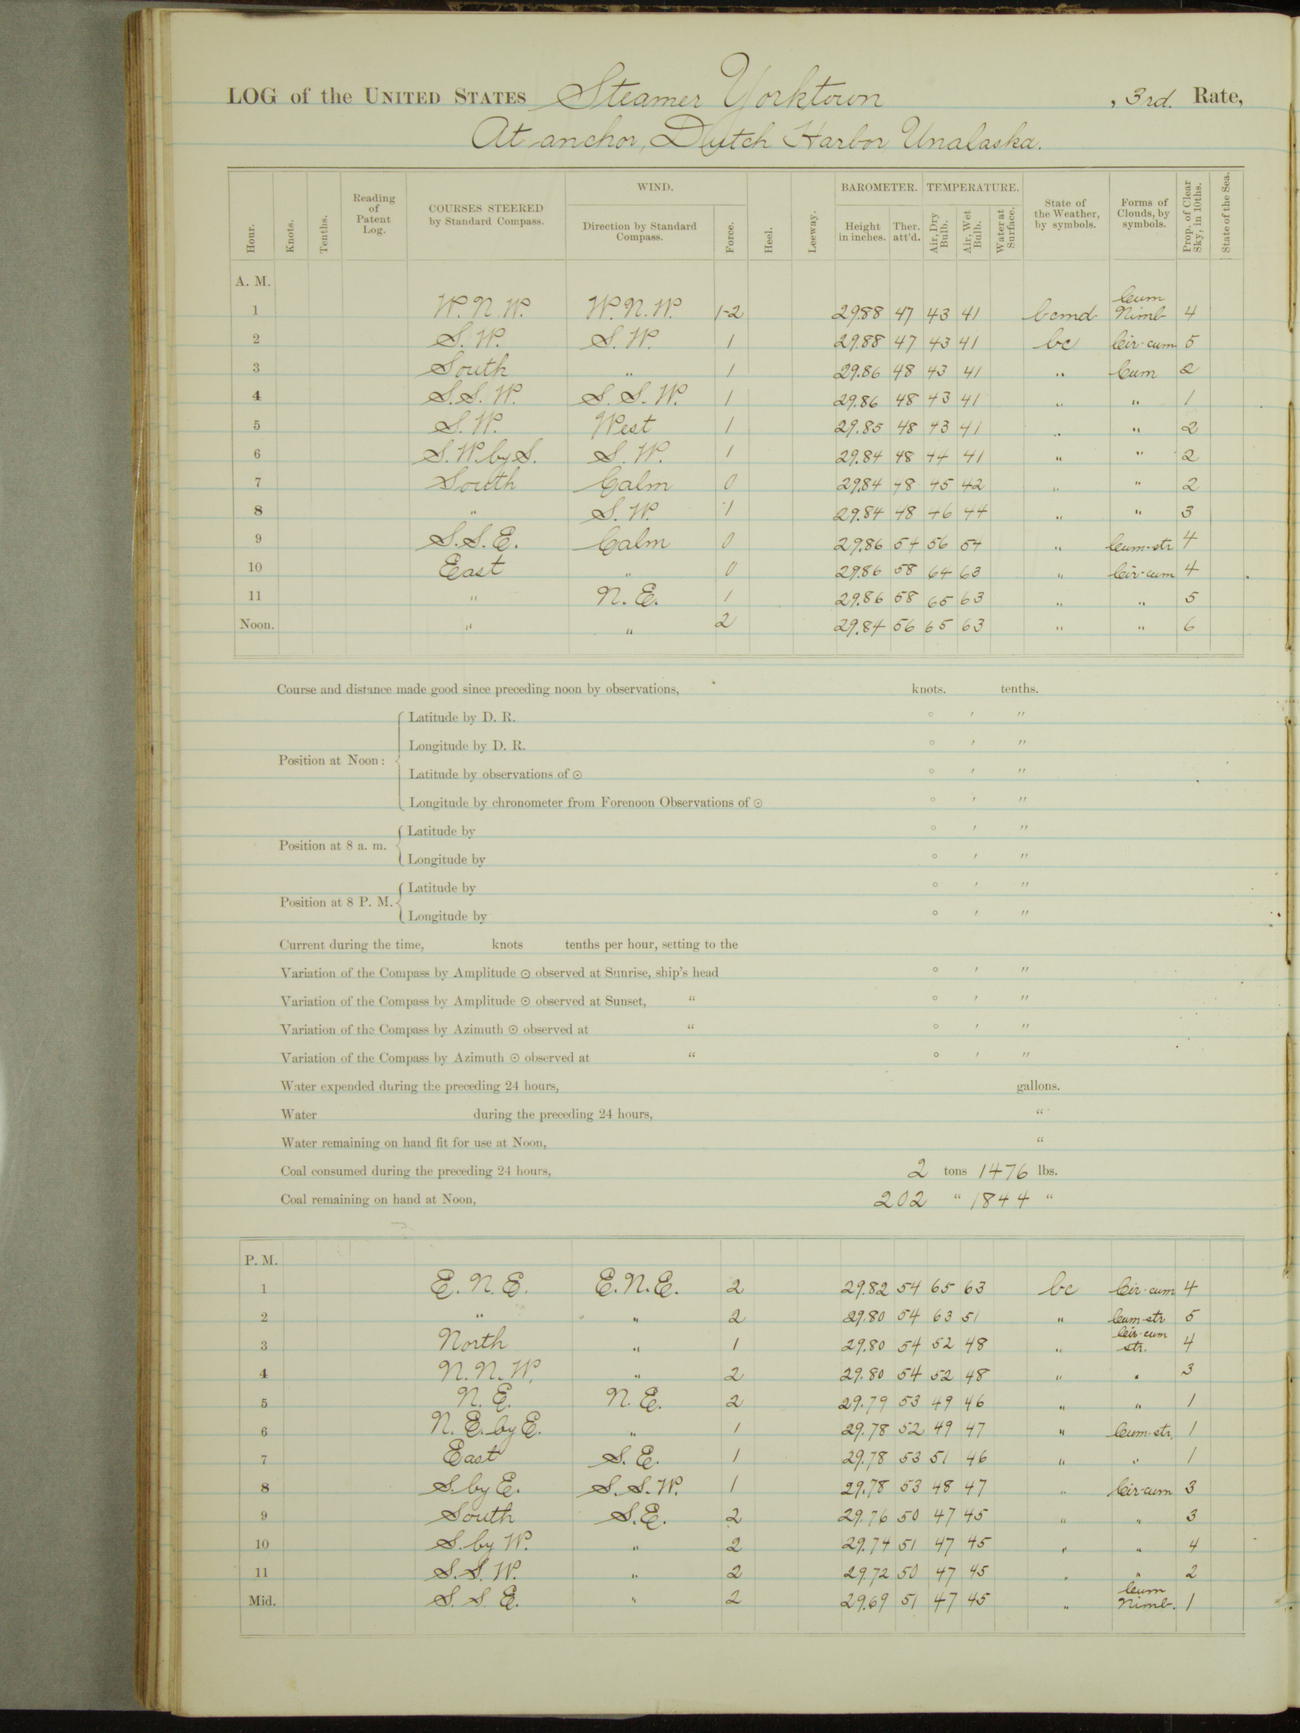 LOG of the UNITED STATES Steamer Yorktown, 3rd. Rate,
At anchor, Dutch Harbor, Unalaska.
Hour. Knots. Tenths. Reading of Patent Log. COURSES STEERED by Standard Compass. WIND. Direction by Standard Compass. Force. Heel. Leeway. BAROMETER. Height in inches. Ther. att'd. TEMPERATURE. Air, Dry Bulb. Air, Wet Bulb. Water at Surface. State of the Weather, by symbols. Forms of Clouds, by symbols. Prop. of Clear Sky, in 10ths. State of the Sea.
A. M.
1 W. N. W. W. N. W. 1-2 29.88 47 43 41 bcmd Cum Nimb 4
2 S. W. S. W. 1 29.88 47 43 41 bc Cir-cum 5
3 South " 1 29.86 48 43 41 " Cum 2
4 S. S. W. S. S. W. 1 29.86 48 43 41 " " 1
5 S. W. West 1 29.85 48 43 41 " " 2
6 S. W. by S. S. W. 1 29.84 48 44 41 " " 2
7 South Calm 0 29.84 48 45 42 " " 2
8 " S. W. 1 29.84 48 46 44 " " 3
9 S. S. E. Calm 0 29.86 54 56 54 " Cum-str 4
10 East " 0 29.86 58 64 63 " Cir-cum 4
11 " N. E. 1 29.86 58 65 63 " " 5
Noon. " " 2 29.84 56 65 63 " " 6
Course and distance made good since preceding noon by observations, knots. tenths.
Position at Noon: Latitude by D. R. ° ′ ″
Longitude by D. R. ° ′ ″
Latitude by observations of ☉ ° ′ ″
Longitude by chronometer from Forenoon Observations of ☉ ° ′ ″
Position at 8 a. m. Latitude by ° ′ ″
Longitude by ° ′ ″
Position at 8 P. M. Latitude by ° ′ ″
Longitude by ° ′ ″
Current during the time, knots tenths per hour, setting to the
Variation of the Compass by Amplitude ☉ observed at Sunrise, ship's head ° ′ ″
Variation of the Compass by Amplitude ☉ observed at Sunset, " ° ′ ″
Variation of the Compass by Azimuth ☉ observed at " ° ′ ″
Variation of the Compass by Azimuth ☉ observed at " ° ′ ″
Water expended during the preceding 24 hours, gallons.
Water during the preceding 24 hours, "
Water remaining on hand fit for use at Noon, "
Coal consumed during the preceding 24 hours, 2 tons 1476 lbs.
Coal remaining on hand at Noon, 202 " 1844 "
P. M.
1 E. N. E. E. N. E. 2 29.82 54 65 63 bc Cir-cum 4
2 " " 2 29.80 54 63 51 " Cum-str 5
3 North " 1 29.80 54 52 48 " Cir-cum str. 4
4 N. N. W. " 2 29.80 54 52 48 " " 3
5 N. E. N. E. 2 29.79 53 49 46 " " 1
6 N. E. by E. " 1 29.78 52 49 47 " Cum-str. 1
7 East S. E. 1 29.78 53 51 46 " " 1
8 S. by E. S. S. W. 1 29.78 53 48 47 " Cir-cum 3
9 South S. E. 2 29.76 50 47 45 " " 3
10 S. by W. " 2 29.74 51 47 45 " " 4
11 S. S. W. " 2 29.72 50 47 45 " " 2
Mid. S. S. E. " 2 29.69 51 47 45 " Cum Nimb. 1